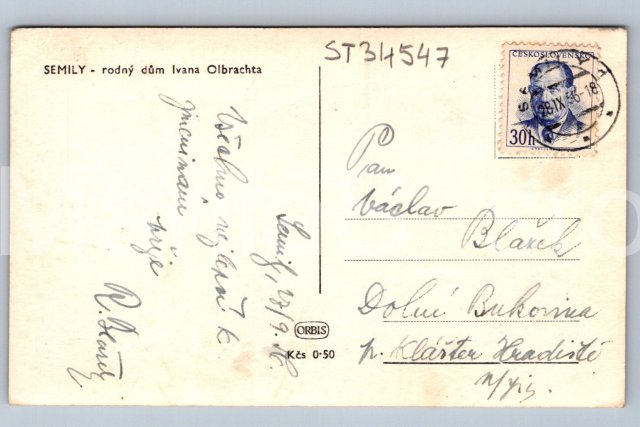 ST34547
SEMILY - rodný dům Ivana Olbrachta
ČESKOSLOVENSKO
30h
28.IX.56-18
Všechno nejlepší k
jmeninám
přeje
Semily, 27/9.56.
Pan
Václav
Blažek
Dolní Bukovina
p. Klášter Hradiště
n/Jiz.
ORBIS
Kčs 0·50